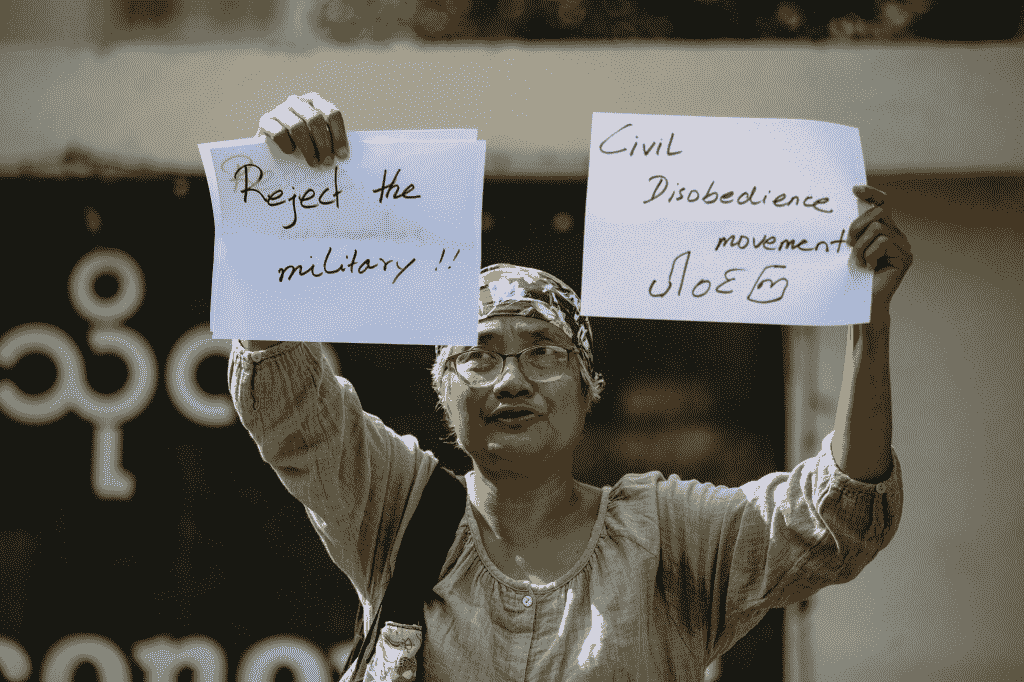 Reject the
military !!
Civil
Disobedience
movement
ပါဝငကြ